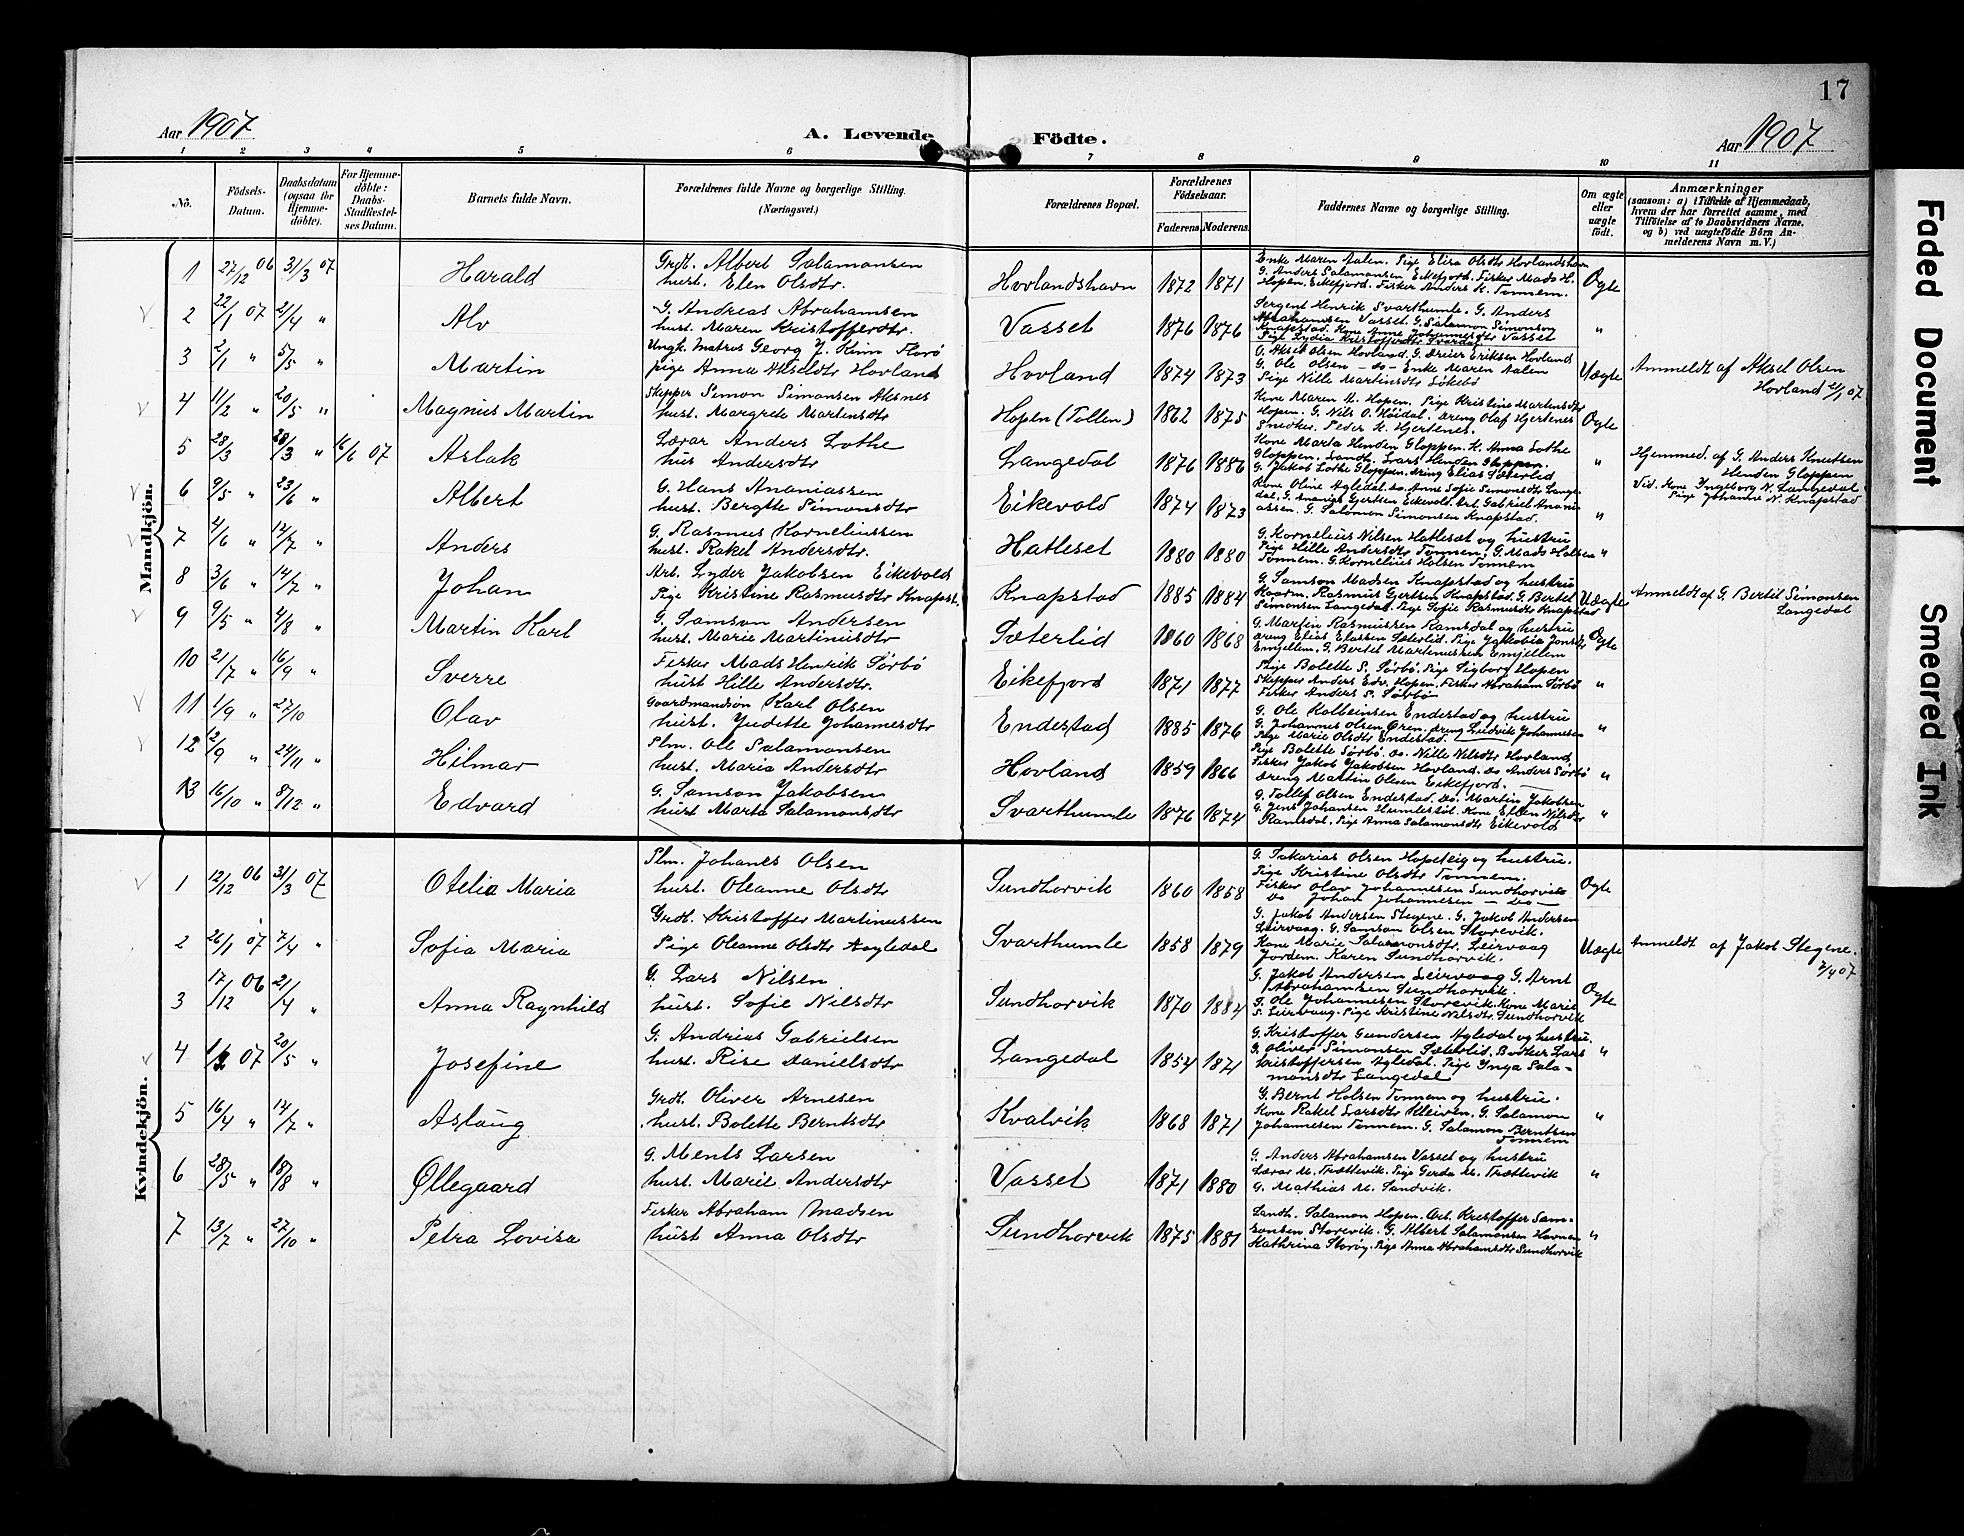 17
Aar 1907
A. Levende Födte.
Aar 1907
1 2 3 4 5 6 7 8 9 10 11
No.
Födsels-Datum.
Daabsdatum (ogsaa for Hjemme-döbte).
For Hjemme-döbte: Daabs-Stadfæstel-ses Datum.
Barnets fulde Navn.
Forældrenes fulde Navne og borgerlige Stilling. (Næringsvei.)
Forældrenes Bopæl.
Forældrenes Födselsaar.
Faderens Moderens
Faddernes Navne og borgerlige Stilling.
Om ægte eller uægte födt.
Anmærkninger
(saasom: a) i Tilfælde af Hjemmedaab, hvem der har forrettet samme, med Tilföielse af to Daabsvidners Navne, og b) ved uægtefödte Börn An-melderens Navn m. V.)
Mandkjön.
1 27/12 06 31/3 07 Harald
Grdt. Albert Salamonsen
hust. Elen Olsdtr.
Hovlandshavn 1872 1871
Enke Maren Aalen. Pige Elisa Olsdtr Hovlandshavn
G. Anders Salamonsen Eikefjord. Fisker Mads H.
Hopen, Eikefjord. Fisker Anders K. Tonnem.
Ægte
2 22/1 07 21/4 " Alv
G. Andreas Abrahamsen
hust. Maren Kristofferdtr.
Vasset 1876 1876
Sergent Henrik Svarthumle. G. Anders
Abrahamsen Vasset. G. Salamon Simonsen
Knapstad. Kone Anne Johannesdtr Vasset
Pige Lydia Kristoffersdtr
"
3 2/1 " 5/5 " Martin
Ungk. Matros Georg J. Kinn Florø
pige Anna Akseldtr Hovland
Hovland 1874 1873
G. Aksel Olsen Hovland. G. Kreier Eriksen Hovland
G. Ole Olsen - do - Enke Maren Aalen
Pige Nille Martinsdtr
Uægte
Anmeldt af Aksel Olsen
Hovland 2/1 07
4 11/2 " 20/5 " Magnus Martin
Skipper Simon Simonsen Aksnes
hust. Margrete Martensdtr
Hopen (Tollen) 1862 1875
Kone Maren H. Hopen. Pige Kristine Martensdtr
Hopen. G. Nils O. Høidal. Dreng Olaf Hjertenes
Snedker Peder K. Hjertenes.
Ægte
5 28/3 28/3 " 16/6 07 Aslak
Lærar Anders Lothe
hus Andersdtr
Langedal 1876 1886
Kone Marta Henden Gloppen. K. Anna Lothe
Gloppen. Landh. Lars Henden Gloppen.
G. Jakob Lothe Gloppen. Dreng Elias Sæterlid
"
Hjemmed. af G. Anders Knutsen
Henden Gloppen
Vid. Kone Ingeborg N. Langedal
Pige Johanne N. Knapstad
6 9/5 " 23/6 " Albert
G. Hans Ananiassen
hust. Bergtte Simonsdtr
Eikevold 1874 1873
Kone Oline Agledal. do. Anne Sofie Simonsdtr Lange-
dal, G. Ananias Gjertsen Eikevold. Arb. Gabriel Anani-
assen. G. Salomon Simonsen Knapstad.
"
7 4/6 " 14/7 " Anders
G. Rasmus Korneliussen
hust. Rakel Andersdtr.
Hatleset 1880 1880
G. Kornelius Nilsen Hatleset og hustru
Pige Hille Andersdtr Tonnem. G. Mads Holsen
Tonnem. G. Kornelius Holsen Tonnem
"
8 3/6 " 14/7 " Johan
Arb. Lyder Jakobsen Eikevold
Pige Kristine Rasmusdtr Knapst.
Knapstad 1885 1884
G. Samson Madsen Knapstad og hustru
Kaarm. Rasmus Gjertsen Knapstad. G. Bertel
Simonsen Langedal. Pige Sofie Rasmusdtr Knapstad
Uægte
Anmeldt af G. Bertil Simonsen
Langedal
9 9/5 " 4/8 " Martin Karl
G. Samson Andersen
hust. Marie Martinusdtr
Sæterlid 1860 1868
G. Martin Rasmussen Ramsdal og hustru
dreng Elias Eliassen Sæterlid. Pige Jakobia Jonsdtr
Emjellem. G. Bertel Martinussen Emjellem
Ægte
10 21/7 " 16/9 " Sverre
Fisker Mads Henrik Sørbø
hust Hille Andersdtr.
Eikefjord 1871 1877
Pige Bolette S. Sørbø. Pige Sigborg Hopen
Skipper Anders Edv. Hopen. Fisker Abraham Sørbø
Fisker Anders S. Sørbø
"
11 1/9 " 27/10 Olav
Gaardmandsøn Karl Olsen
hust. Juditte Johannesdtr
Endestad 1885 1876
G. Ole Kolbeinsen Endestad og hustru
G. Johannes Olsen Øren. dreng Ludvik Johannesen
Pige Marie Olsdtr Endestad.
"
12 2/9 " 24/11 " Hilmar
Plm. Ole Salamonsen
hust. Maria Andersdtr
Hovland 1859 1866
Pige Bolette Sørbø. do. Nille Nilsdtr Hovland.
Fisker Jakob Jakobsen Hovland. do Anders Sørbø
dreng Martin Olsen Eikefjord.
"
13 16/10 " 8/12 " Edvard
G. Samson Jakobsen
hust Marta Salamonsdtr
Svarthumle 1876 1874
G. Tollef Olsen Endestad. Do. Martin Jakobsen
G. Jens Johansen Humlestøl. Kone Ellen Nilsdtr
Ramsdal, Pige Anna Salamonsdtr Eikevold
"
Kvindekjön.
1 12/12 06 31/3 07 Otelia Maria
Plm. Johanes Olsen
hust. Oleanne Olsdtr
Sundhorvik 1860 1858
G. Sakarias Olsen Hopeteig og hustru.
Pige Kristine Olsdtr Tonnem.
Fisker Olav Johannesen Sundhorvik
Do Johan Johannesen - Do -
Ægte
2 26/1 07 7/4 " Sofia Maria
Grdt. Kristoffer Martinussen
Pige Oleanne Olsdtr Aagledal
Svarthumle 1858 1879
G. Jakob Andersen Stegene. G. Jakob Andersen
Leirvaag. G. Samson Olsen Storevik.
Kone Marie Salamonsdtr. Leirvaag
Jordem. Karen Sundhorvik.
Uægte
Anmeldt af Jakob Stegene.
7/4 07
3 17/12 06 21/4 " Anna Ragnhild
G. Lars Nilsen
hust. Sofie Nilsdtr
Sundhorvik 1870 1884
G. Jakob Andersen Leirvaag G. Arnt
Abrahamsen Sundhorvik.
G. Ole Johannesen Storevik. Kone Marie
S. Leirvaag. Pige Kristine Nilsdtr. Sundhorvik
Ægte
4 07 20/5 " Josefine
G. Andrias Gabrielsen
hust. Rise Danielsdtr
Langedal 1854 1871
G. Kristoffer Gundersen Agledal og hustru.
G. Oliver Simonsen Sæterlid. Bødker Lars
Kristoffersen Agledal. Pige Inga Sala-
monsdtr Langedal
"
5 16/4 " 14/7 " Aslaug
Grdt. Oliver Arnesen
hust. Bolette Berntsdtr
Kvalvik 1868 1871
G. Bernt Holsen Tonnem og hustru.
Kone Rakel Larsdtr Kleiven. G. Salamon
Johannesen Tonnem. G. Salamon Berntsen
Tonnem
"
6 28/5 " 18/8 " Øllegaard
G. Ments Larsen
hust. Marie Andersdtr
Vasset 1871 1880
G. Anders Abrahamsen Vasset og hustru
Lærar M. Trættevik. Pige Gerda M. Trættevik
G. Mathias M. Sandvik.
"
7 13/7 " 27/10 " Petra Lovisa
Fisker Abraham Madsen
hust Anna Olsdtr
Sundhorvik 1875 1881
Landh. Salamon Hopen. Arb. Kristoffer Sam-
sonsen Storevik. G. Albert Salamonsen Havnen
Kathrina Storøy. Pige Anna Abrahamsdtr Sundhorvik
"
Faded Document
Smeared Ink